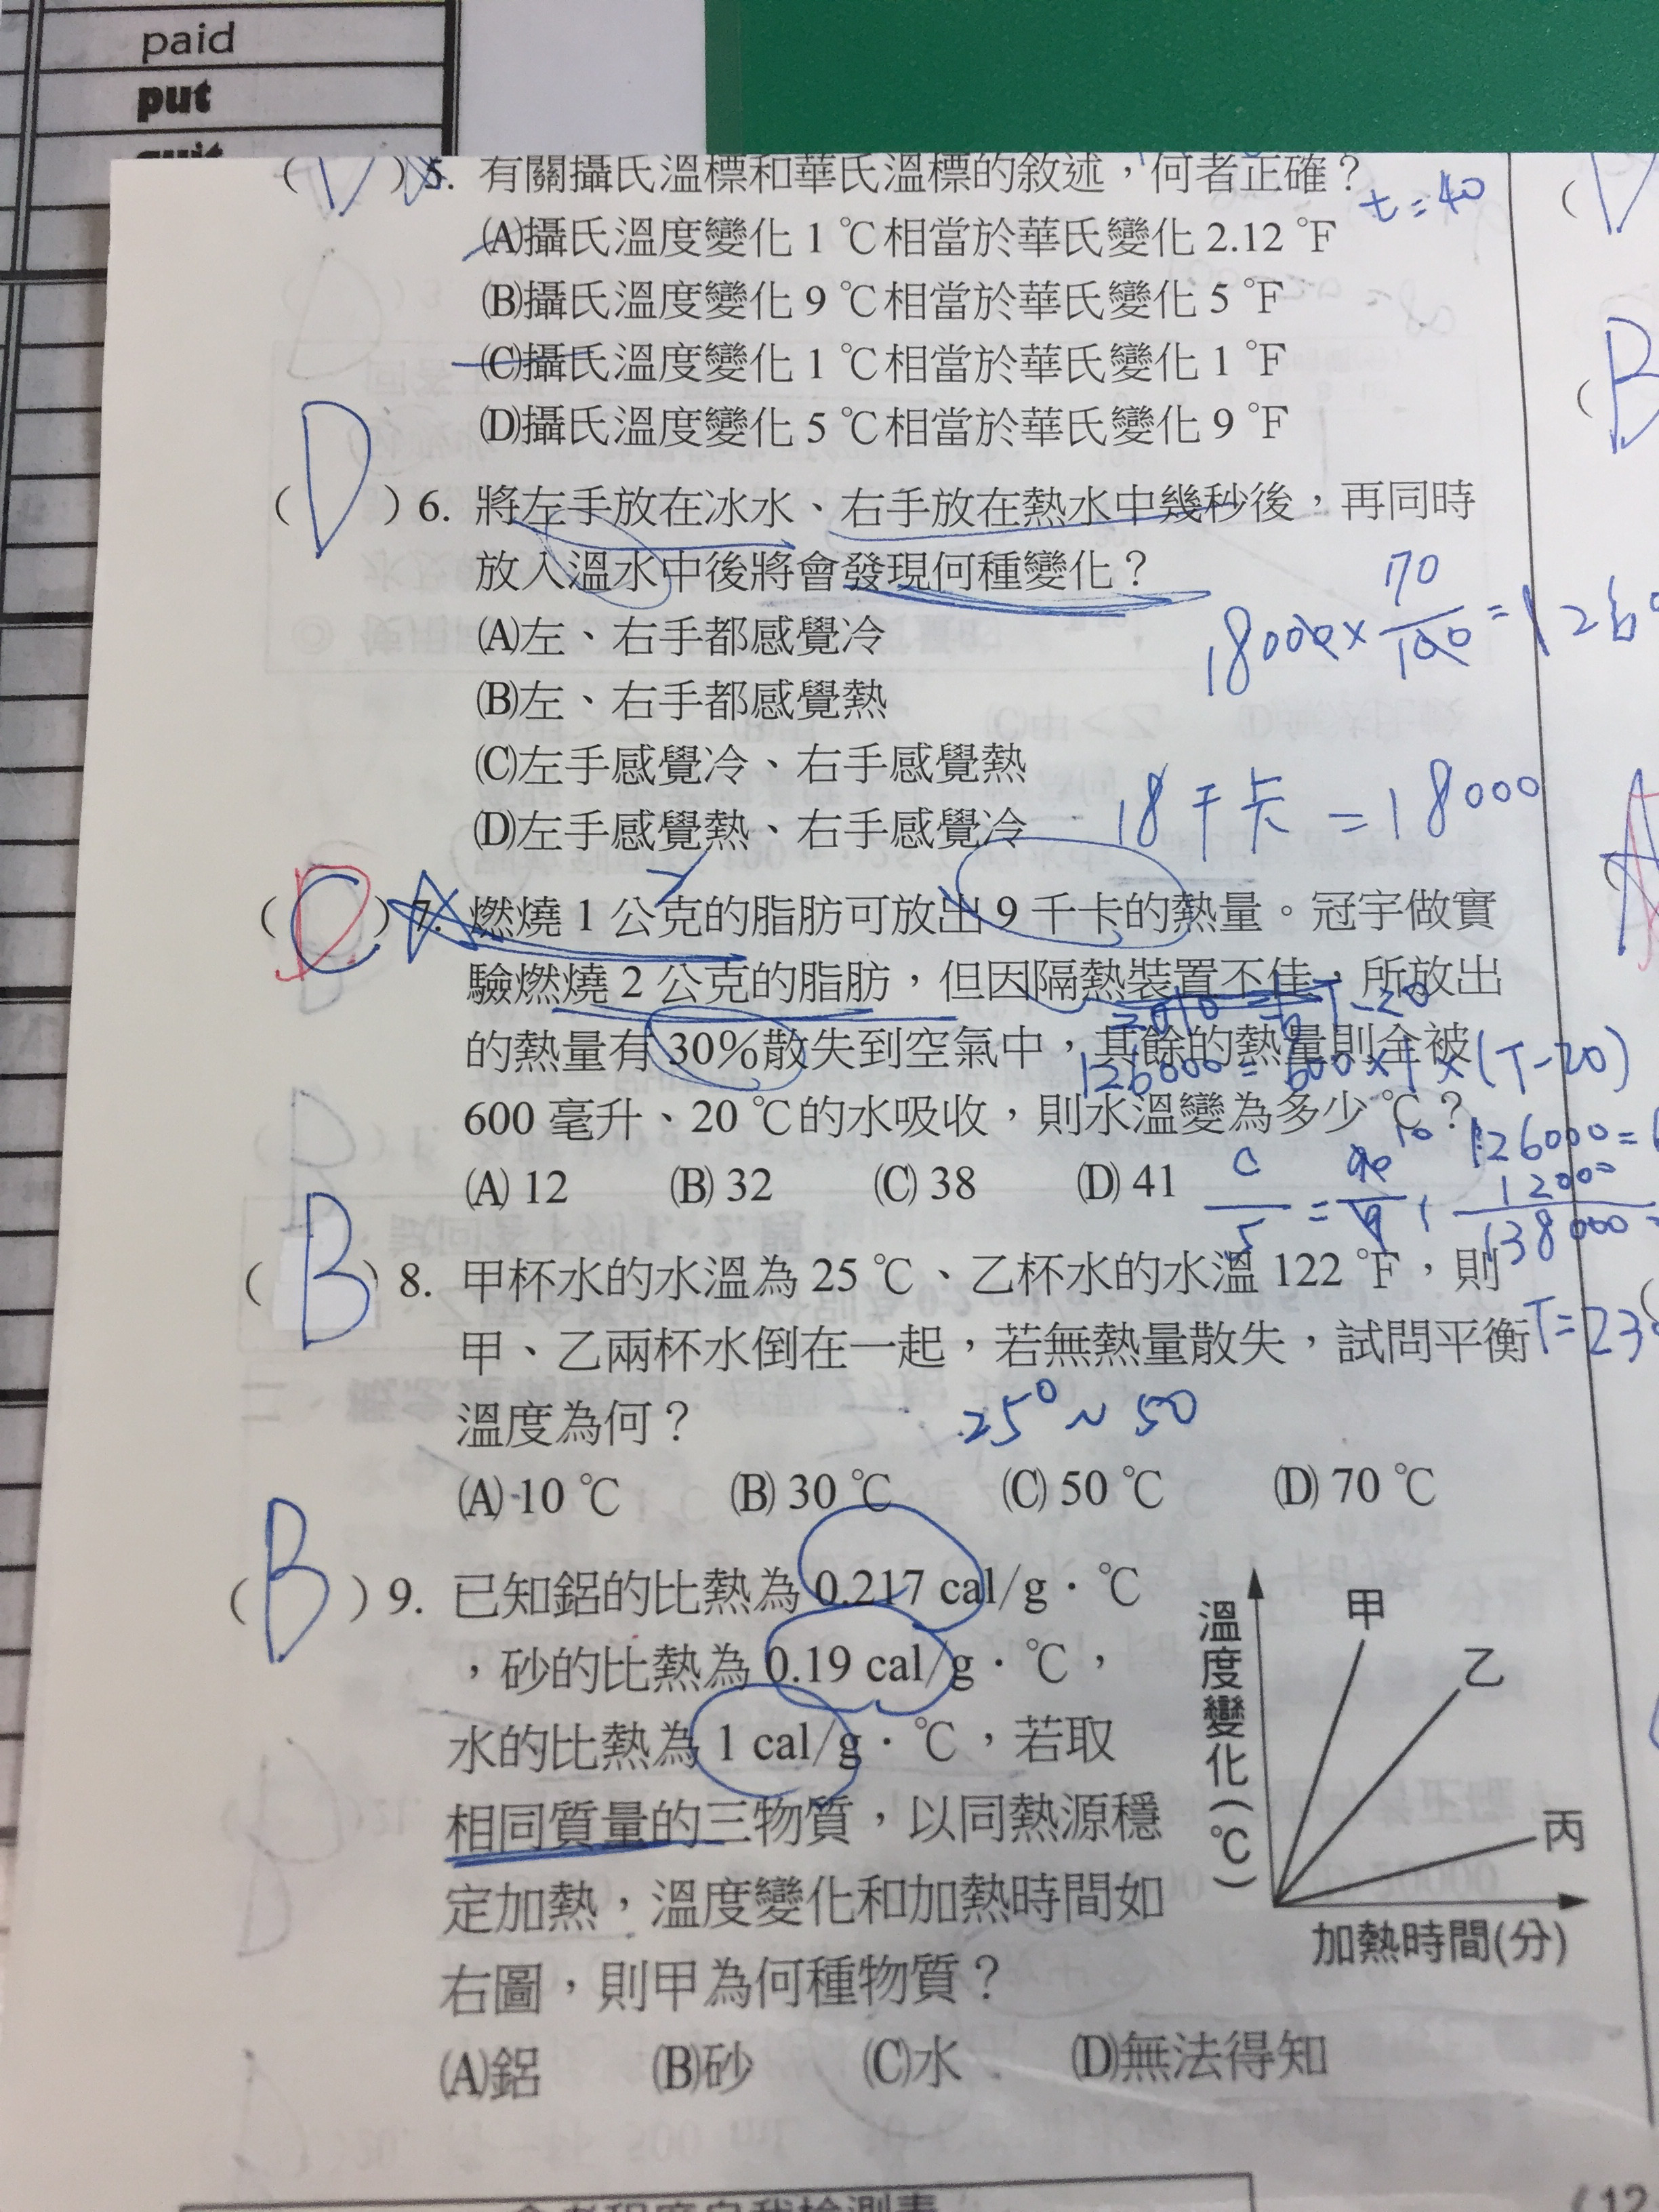 paid
put
quit
(D)5. 有關攝氏溫標和華氏溫標的敘述，何者正確？
t=40
(A)攝氏溫度變化 1 ℃相當於華氏變化 2.12 ℉
(B)攝氏溫度變化 9 ℃相當於華氏變化 5 ℉
(C)攝氏溫度變化 1 ℃相當於華氏變化 1 ℉
(D)攝氏溫度變化 5 ℃相當於華氏變化 9 ℉
B
(D)6. 將左手放在冰水、右手放在熱水中幾秒後，再同時
放入溫水中後將會發現何種變化？
18000×70/100=1260
(A)左、右手都感覺冷
(B)左、右手都感覺熱
(C)左手感覺冷、右手感覺熱
(D)左手感覺熱、右手感覺冷
18千卡=18000
A
(C)7. 燃燒 1 公克的脂肪可放出 9 千卡的熱量。冠宇做實
驗燃燒 2 公克的脂肪，但因隔熱裝置不佳，所放出
的熱量有 30%散失到空氣中，其餘的熱量則全被
126000=600×1×(T-20)
600 毫升、20 ℃的水吸收，則水溫變為多少 ℃？
126000=
12000
138000=
(A) 12 (B) 32 (C) 38 (D) 41
(B)8. 甲杯水的水溫為 25 ℃、乙杯水的水溫 122 ℉，則
甲、乙兩杯水倒在一起，若無熱量散失，試問平衡
T=23
溫度為何？
25°~50
(A) 10 ℃ (B) 30 ℃ (C) 50 ℃ (D) 70 ℃
(B)9. 已知鋁的比熱為 0.217 cal/g・℃
，砂的比熱為 0.19 cal/g・℃，
水的比熱為 1 cal/g・℃，若取
相同質量的三物質，以同熱源穩
定加熱，溫度變化和加熱時間如
右圖，則甲為何種物質？
(A)鋁 (B)砂 (C)水 (D)無法得知
溫度變化(℃)
甲
乙
丙
加熱時間(分)